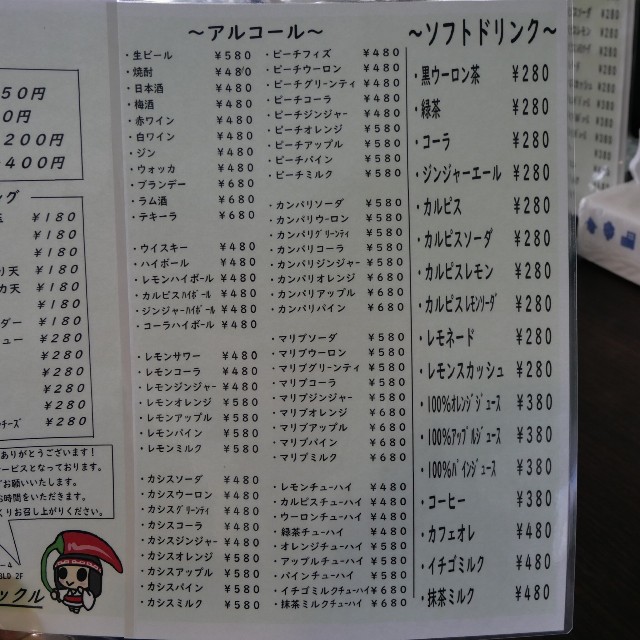 ５０円
０円
２００円
４００円
ング
￥１８０
￥１８０
￥１８０
り天 ￥１８０
カ天 ￥１８０
￥１８０
ダー ￥１８０
ュー ￥２８０
￥２８０
￥２８０
￥２８０
￥２８０
チーズ ￥２８０
ありがとうございます！
ービスとなっております。
ご お願いいたします。
お時間をいただきます。
くりお召し上がりください。
BLD 2F
ックル
～アルコール～
・生ビール ￥５８０
・焼酎 ￥４８０
・日本酒 ￥４８０
・梅酒 ￥４８０
・赤ワイン ￥４８０
・白ワイン ￥４８０
・ジン ￥４８０
・ウォッカ ￥４８０
・ブランデー ￥６８０
・ラム酒 ￥６８０
・テキーラ ￥６８０
・ウイスキー ￥４８０
・ハイボール ￥４８０
・レモンハイボール ￥４８０
・カルピスﾊｲﾎﾞｰﾙ ￥４８０
・ジンジャーﾊｲﾎﾞｰﾙ ￥４８０
・コーラハイボール ￥４８０
・レモンサワー ￥４８０
・レモンコーラ ￥４８０
・レモンジンジャー ￥４８０
・レモンオレンジ ￥５８０
・レモンアップル ￥５８０
・レモンパイン ￥５８０
・レモンミルク ￥５８０
・カシスソーダ ￥４８０
・カシスウーロン ￥４８０
・カシスｸﾞﾘｰﾝﾃｨ ￥４８０
・カシスコーラ ￥４８０
・カシスジンジャー ￥４８０
・カシスオレンジ ￥５８０
・カシスアップル ￥５８０
・カシスパイン ￥５８０
・カシスミルク ￥５８０
・ピーチフィズ ￥４８０
・ピーチウーロン ￥４８０
・ピーチグリーンティ ￥４８０
・ピーチコーラ ￥４８０
・ピーチジンジャー ￥４８０
・ピーチオレンジ ￥５８０
・ピーチアップル ￥５８０
・ピーチパイン ￥５８０
・ピーチミルク ￥５８０
・カンパリソーダ ￥５８０
・カンパリウーロン ￥５８０
・カンパリｸﾞﾘｰﾝﾃｨ ￥５８０
・カンパリコーラ ￥５８０
・カンパリジンジャー ￥５８０
・カンパリオレンジ ￥６８０
・カンパリアップル ￥６８０
・カンパリパイン ￥６８０
・マリブソーダ ￥５８０
・マリブウーロン ￥５８０
・マリブグリーンティ ￥５８０
・マリブコーラ ￥５８０
・マリブジンジャー ￥５８０
・マリブオレンジ ￥６８０
・マリブアップル ￥６８０
・マリブパイン ￥６８０
・マリブミルク ￥６８０
・レモンチューハイ ￥４８０
・カルピスチューハイ ￥４８０
・ウーロンチューハイ ￥４８０
・緑茶チューハイ ￥４８０
・オレンジチューハイ ￥５８０
・アップルチューハイ ￥５８０
・パインチューハイ ￥５８０
・イチゴミルクチューハイ ￥６８０
・抹茶ミルクチューハイ ￥６８０
～ソフトドリンク～
・黒ウーロン茶 ￥２８０
・緑茶 ￥２８０
・コーラ ￥２８０
・ジンジャーエール ￥２８０
・カルピス ￥２８０
・カルピスソーダ ￥２８０
・カルピスレモン ￥２８０
・カルピスﾚﾓﾝｿｰﾀﾞ ￥２８０
・レモネード ￥２８０
・レモンスカッシュ ￥２８０
・100%ｵﾚﾝｼﾞｼﾞｭｰｽ ￥３８０
・100%ｱｯﾌﾟﾙｼﾞｭｰｽ ￥３８０
・100%ﾊﾟｲﾝｼﾞｭｰｽ ￥３８０
・コーヒー ￥３８０
・カフェオレ ￥４８０
・イチゴミルク ￥４８０
・抹茶ミルク ￥４８０